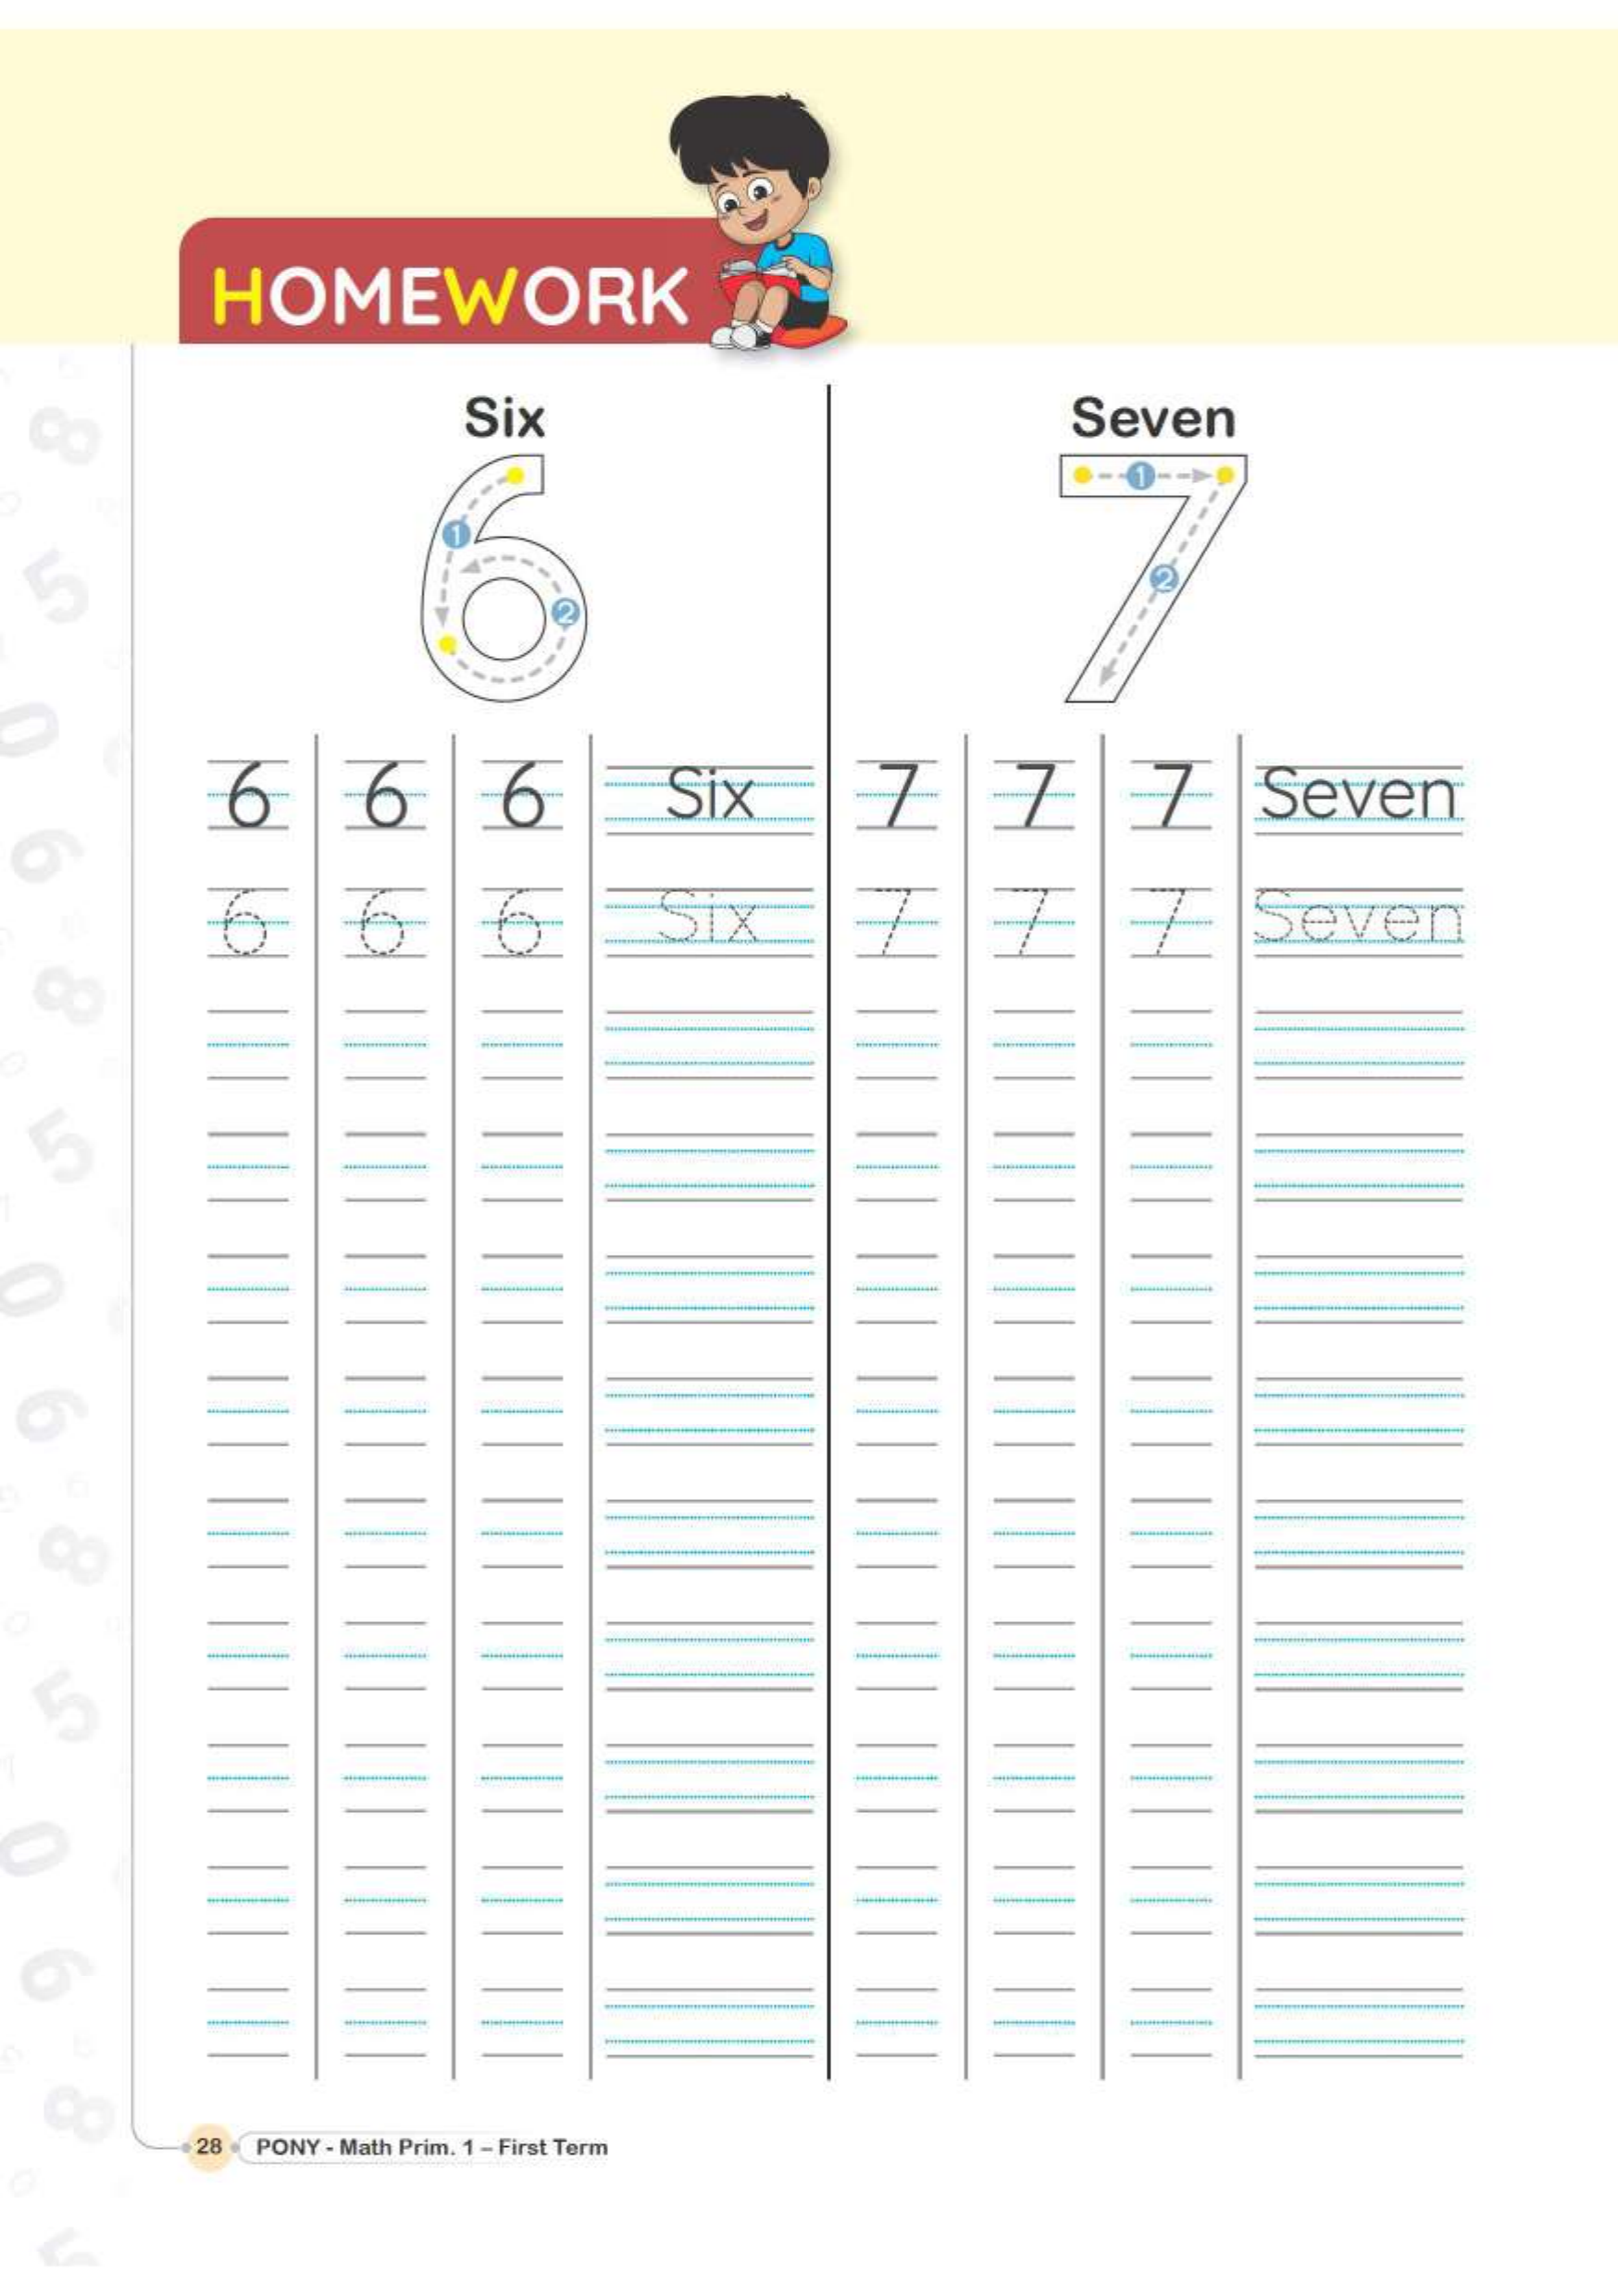 HOMEWORK
Six
Seven
1
2
1
2
6 6 6 Six 7 7 7 Seven
6 6 6 Six 7 7 7 Seven
28 PONY - Math Prim. 1 – First Term